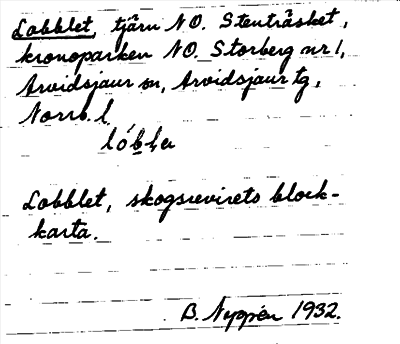 Lobblet, tjärn NO. Stenträsket,
kronoparken NO. Storberg nr 1,
Arvidsjaur sn, Arvidsjaur tg,
Norrb. l.
Lobblet, skogsrevirets block-
karta.
B. Nyppén 1932.